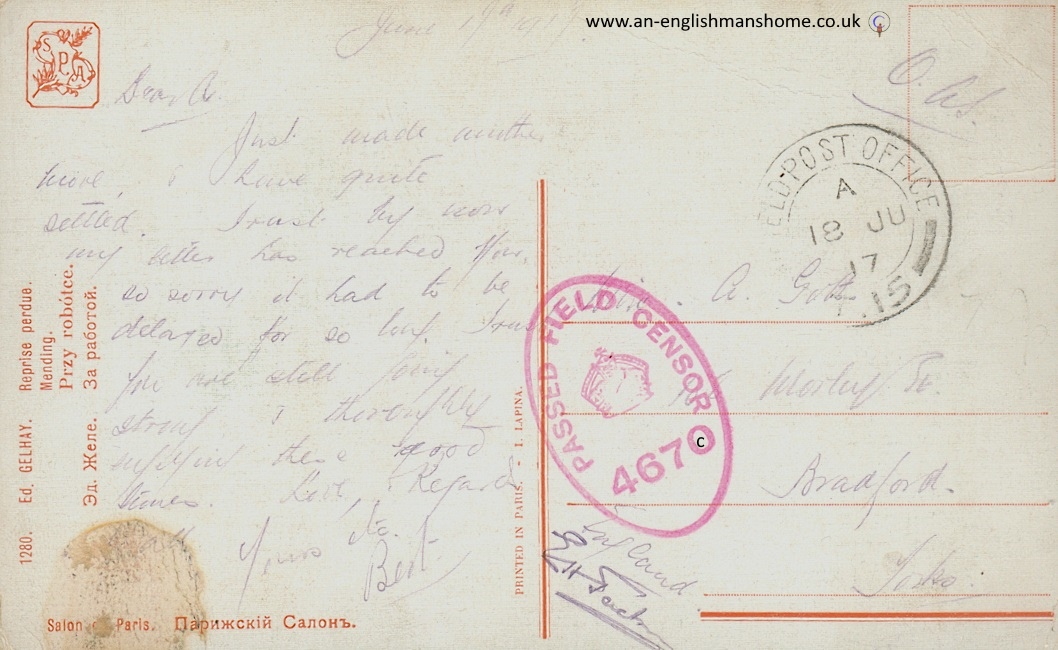 www.an-englishmanshome.co.uk
SPA
June 17
O. A. S.
FIELD POST OFFICE
A
18 JU
17
.15
Dear A.
Just made another
move, I have quite
settled. Trust by now
my letter has reached you,
so sorry it had to be
delayed for so long. Trust
you are still going
strong & thoroughly
enjoying these good
times. Love, Regards
Yours
Bert
A. Gott
Worley St.
Bradford.
Yorks.
England
PASSED FIELD CENSOR
467
c
PRINTED IN PARIS. - I. LAPINA.
1280. Ed. GELHAY. Reprise perdue.
Mending.
Przy robótce.
Эд. Желе. За работой.
Salon de Paris. Парижскій Салонъ.